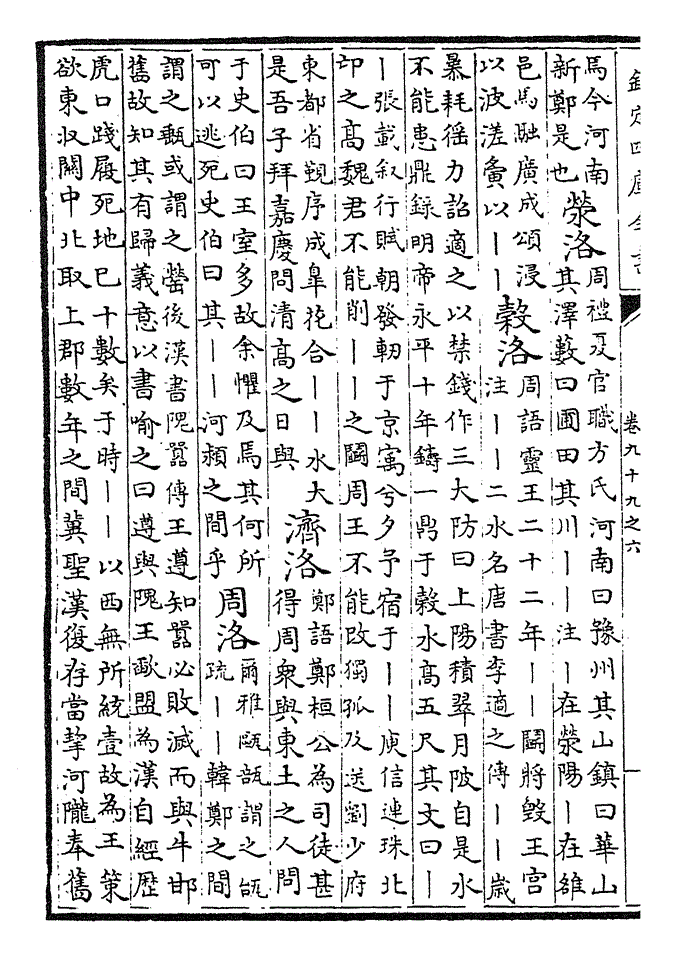 欽定四庫全書
卷九十九之六
馬今河南
新鄭是也
滎洛
周禮夏官職方氏河南曰豫州其山鎮曰華山
其澤藪曰圃田其川丨丨注丨在滎陽丨在雒
邑馬融廣成頌浸
以波溠夤以丨丨
榖洛
周語靈王二十二年丨丨鬭將毀王宮
注丨丨二水名唐書李適之傳丨丨歲
暴耗徭力詔適之以禁錢作三大防曰上陽積翠月陂自是水
不能患鼎錄明帝永平十年鑄一鼎于榖水高五尺其文曰丨
丨張載叙行賦朝發軔于京㝢兮夕予宿于丨丨庾信連珠北
邙之高魏君不能削丨丨之鬭周王不能改獨孤及送劉少府
東都省覲序成皐花合丨丨水大
是吾子拜嘉慶問清高之日與
濟洛
鄭語鄭桓公為司徒甚
得周衆與東土之人問
于史伯曰王室多故余懼及焉其何所
可以逃死史伯曰其丨丨河潁之間乎
周洛
爾雅甌瓿謂之瓵
疏丨丨韓鄭之間
謂之甀或謂之罃後漢書隗囂傳王遵知囂必敗滅而與牛邯
舊故知其有歸義意以書喻之曰遵與隗王歃盟為漢自經歴
虎口踐履死地已十數矣于時丨丨以西無所統壹故為王策
欲東収關中北取上郡數年之間冀聖漢復存當挈河隴奉舊